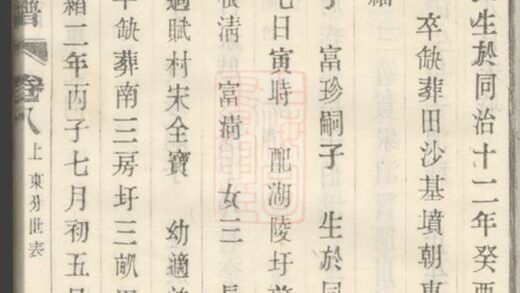 生於同治十二年癸酉
卒缺葬田沙基墳朝東
子 富珍嗣子 生於同
七日寅時 配湖陵圩
根清 富滿 女三 長
適賦村宋全寶 幼適
年缺葬南三房圩三畝
緒二年丙子七月初五日
譜 卷八 上 東分世表